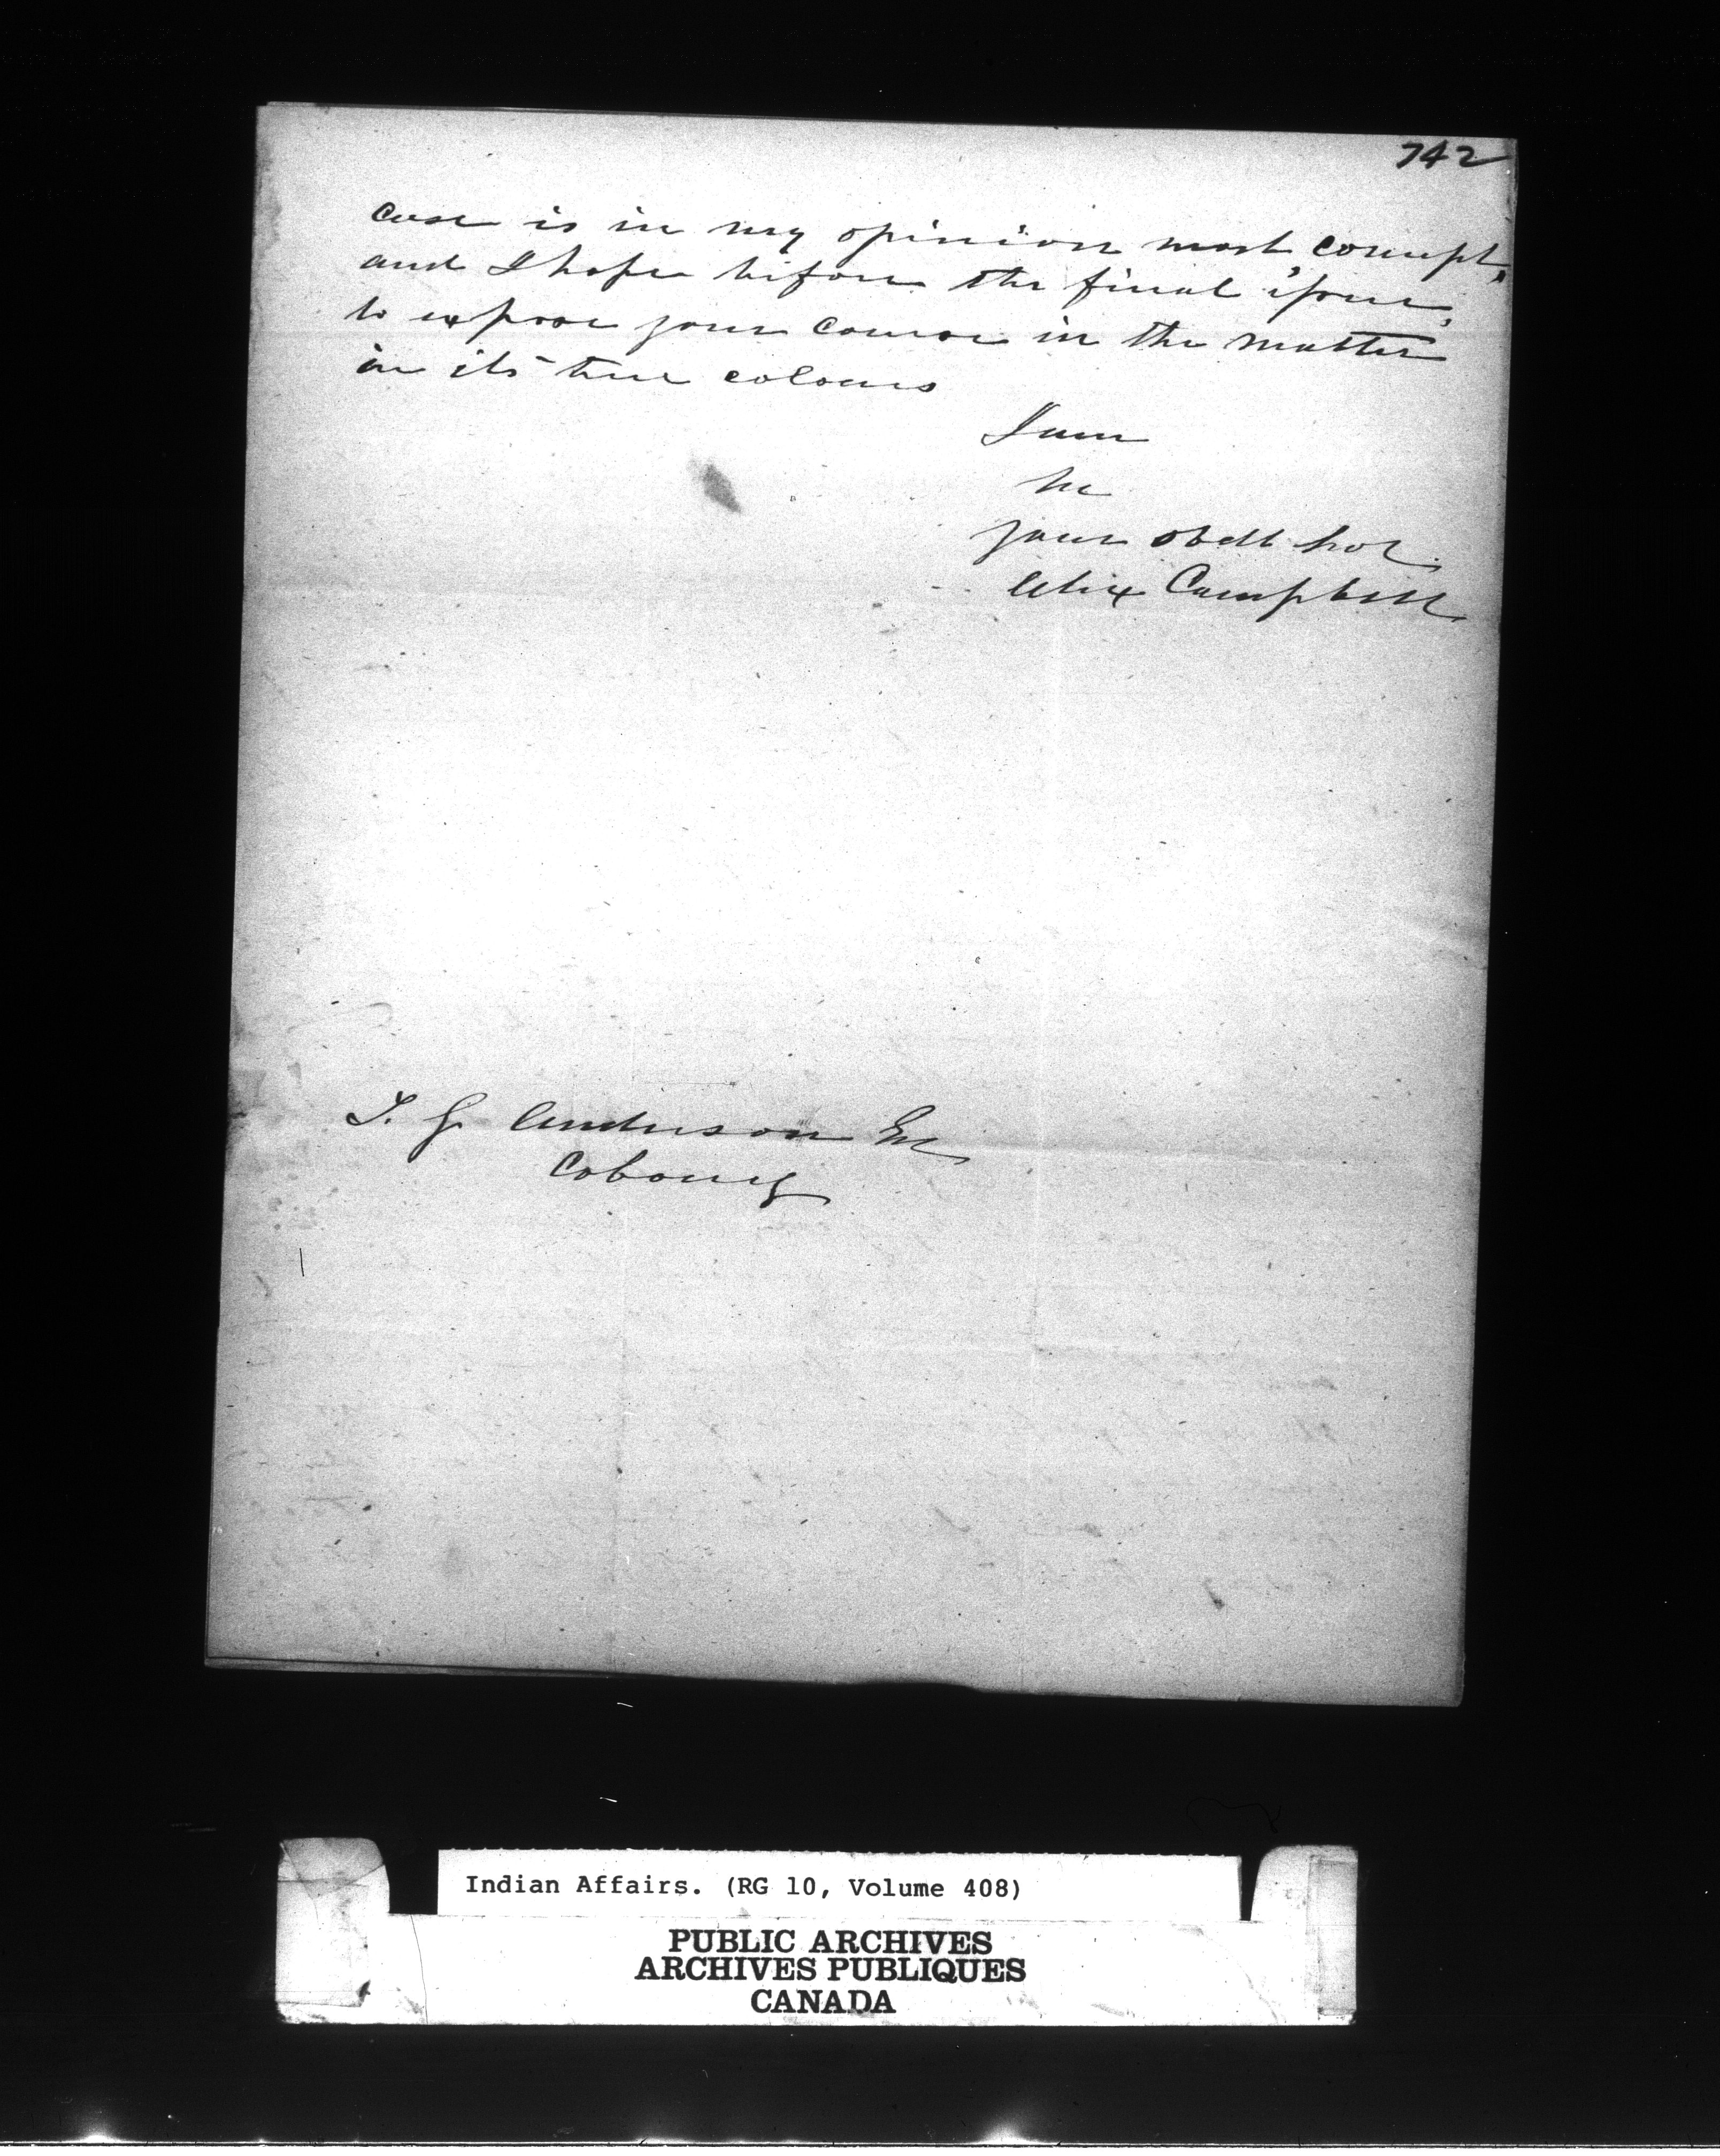 742
case is in my opinion most corrupt,
and I hope before the final issue,
to expose your course in the matter
in its true colours
I am
Sir
your obdt Srvt
Alex Campbell
T. G. Anderson Esq
Cobourg
Indian Affairs. (RG 10, Volume 408)
PUBLIC ARCHIVES
ARCHIVES PUBLIQUES
CANADA